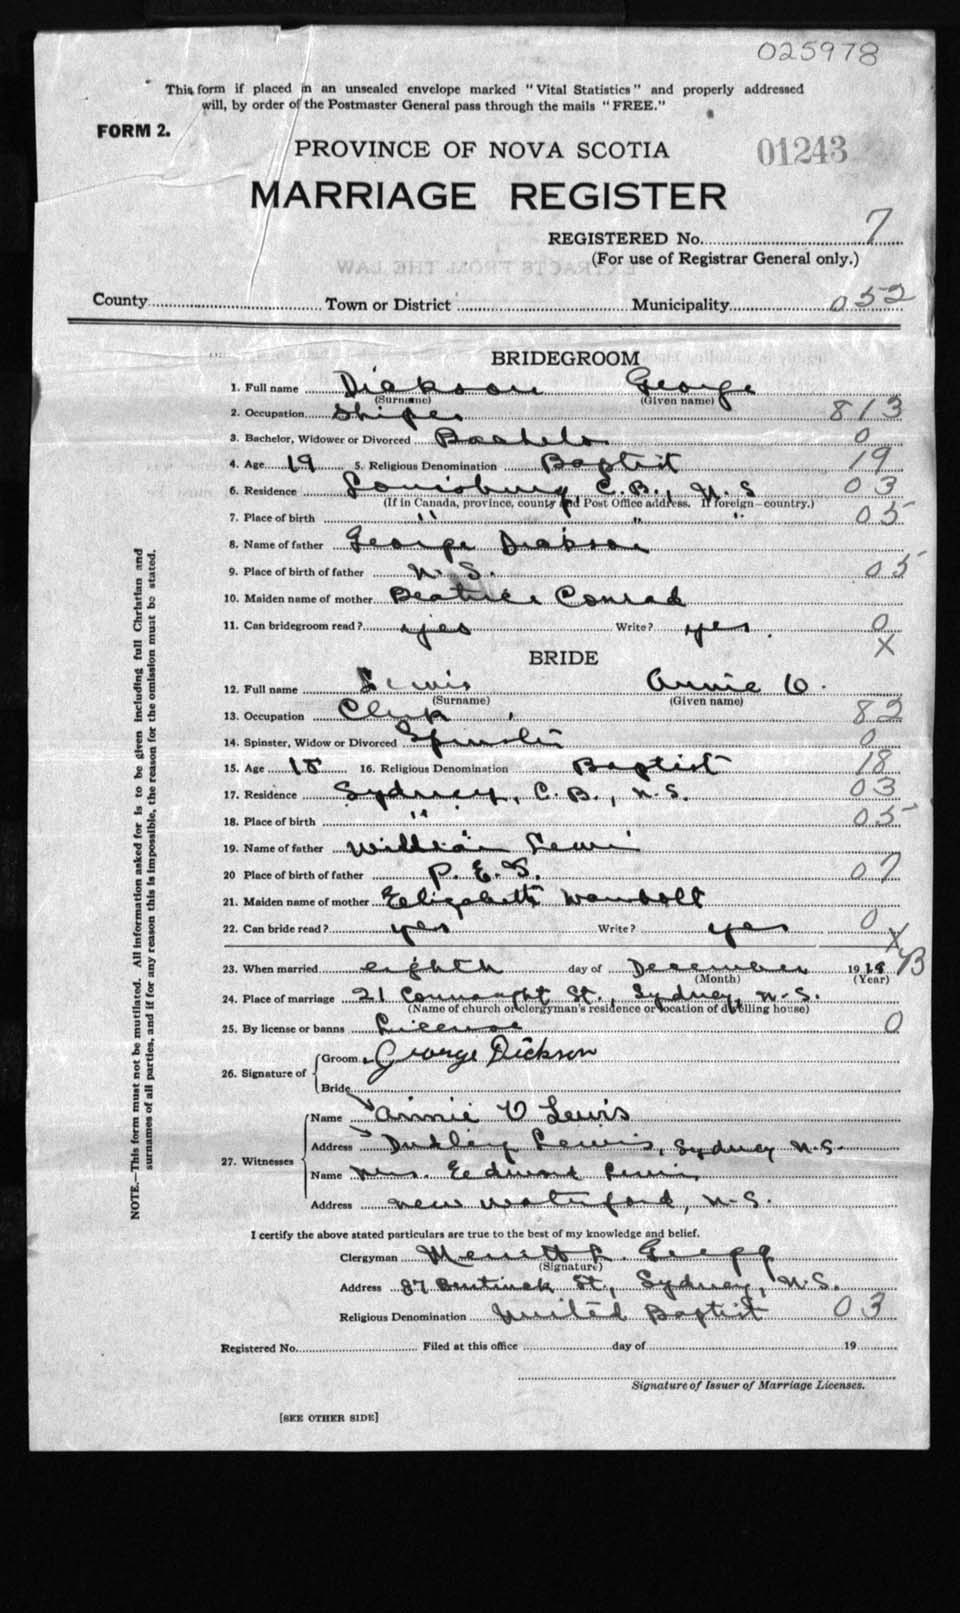 025978
This form if placed in an unsealed envelope marked "Vital Statistics" and properly addressed
will, by order of the Postmaster General pass through the mails "FREE."
FORM 2.
PROVINCE OF NOVA SCOTIA
01243
MARRIAGE REGISTER
REGISTERED No. 7
(For use of Registrar General only.)
EXTRACTS FROM THE LAW
County Town or District Municipality 052
BRIDEGROOM
1. Full name Dickson George
(Surname) (Given name)
2. Occupation Shiper 813
3. Bachelor, Widower or Divorced Bachelor 0
4. Age 19 5. Religious Denomination Baptist 19
6. Residence Louisburg, C.B., N.S 03
(If in Canada, province, county and Post Office address. If foreign—country.)
7. Place of birth " " " 05
8. Name of father George Dickson
9. Place of birth of father N.S. 05
10. Maiden name of mother Beatrice Conrad
11. Can bridegroom read? yes Write? yes. 0
X
BRIDE
12. Full name Lewis Annie V.
(Surname) (Given name)
13. Occupation Clerk 82
14. Spinster, Widow or Divorced Spinster 0
15. Age 18 16. Religious Denomination Baptist 18
17. Residence Sydney, C.B., N.S. 03
18. Place of birth " 05
19. Name of father William Lewis
20 Place of birth of father P.E.I. 07
21. Maiden name of mother Elizabeth Wambolt
22. Can bride read? yes Write? yes 0
X
23. When married eighth day of December 19
(Month) (Year)
24. Place of marriage 21 Connaught St., Sydney, N.S.
(Name of church or clergyman's residence or location of dwelling house)
25. By license or banns License 0
26. Signature of Groom George Dickson
Bride
27. Witnesses Name Annie V Lewis
Address Dudley Lewis, Sydney N.S.
Name Mrs. Edward Lewis
Address New Waterford, N.S.
I certify the above stated particulars are true to the best of my knowledge and belief.
Clergyman Merritt L. Gregg
(Signature)
Address 87 Bentinck St., Sydney, N.S.
Religious Denomination United Baptist 03
Registered No. Filed at this office day of 19
Signature of Issuer of Marriage Licenses.
[SEE OTHER SIDE]
NOTE.—This form must not be mutilated. All information asked for is to be given including full Christian and
surnames of all parties, and if for any reason this is impossible, the reason for the omission must be stated.